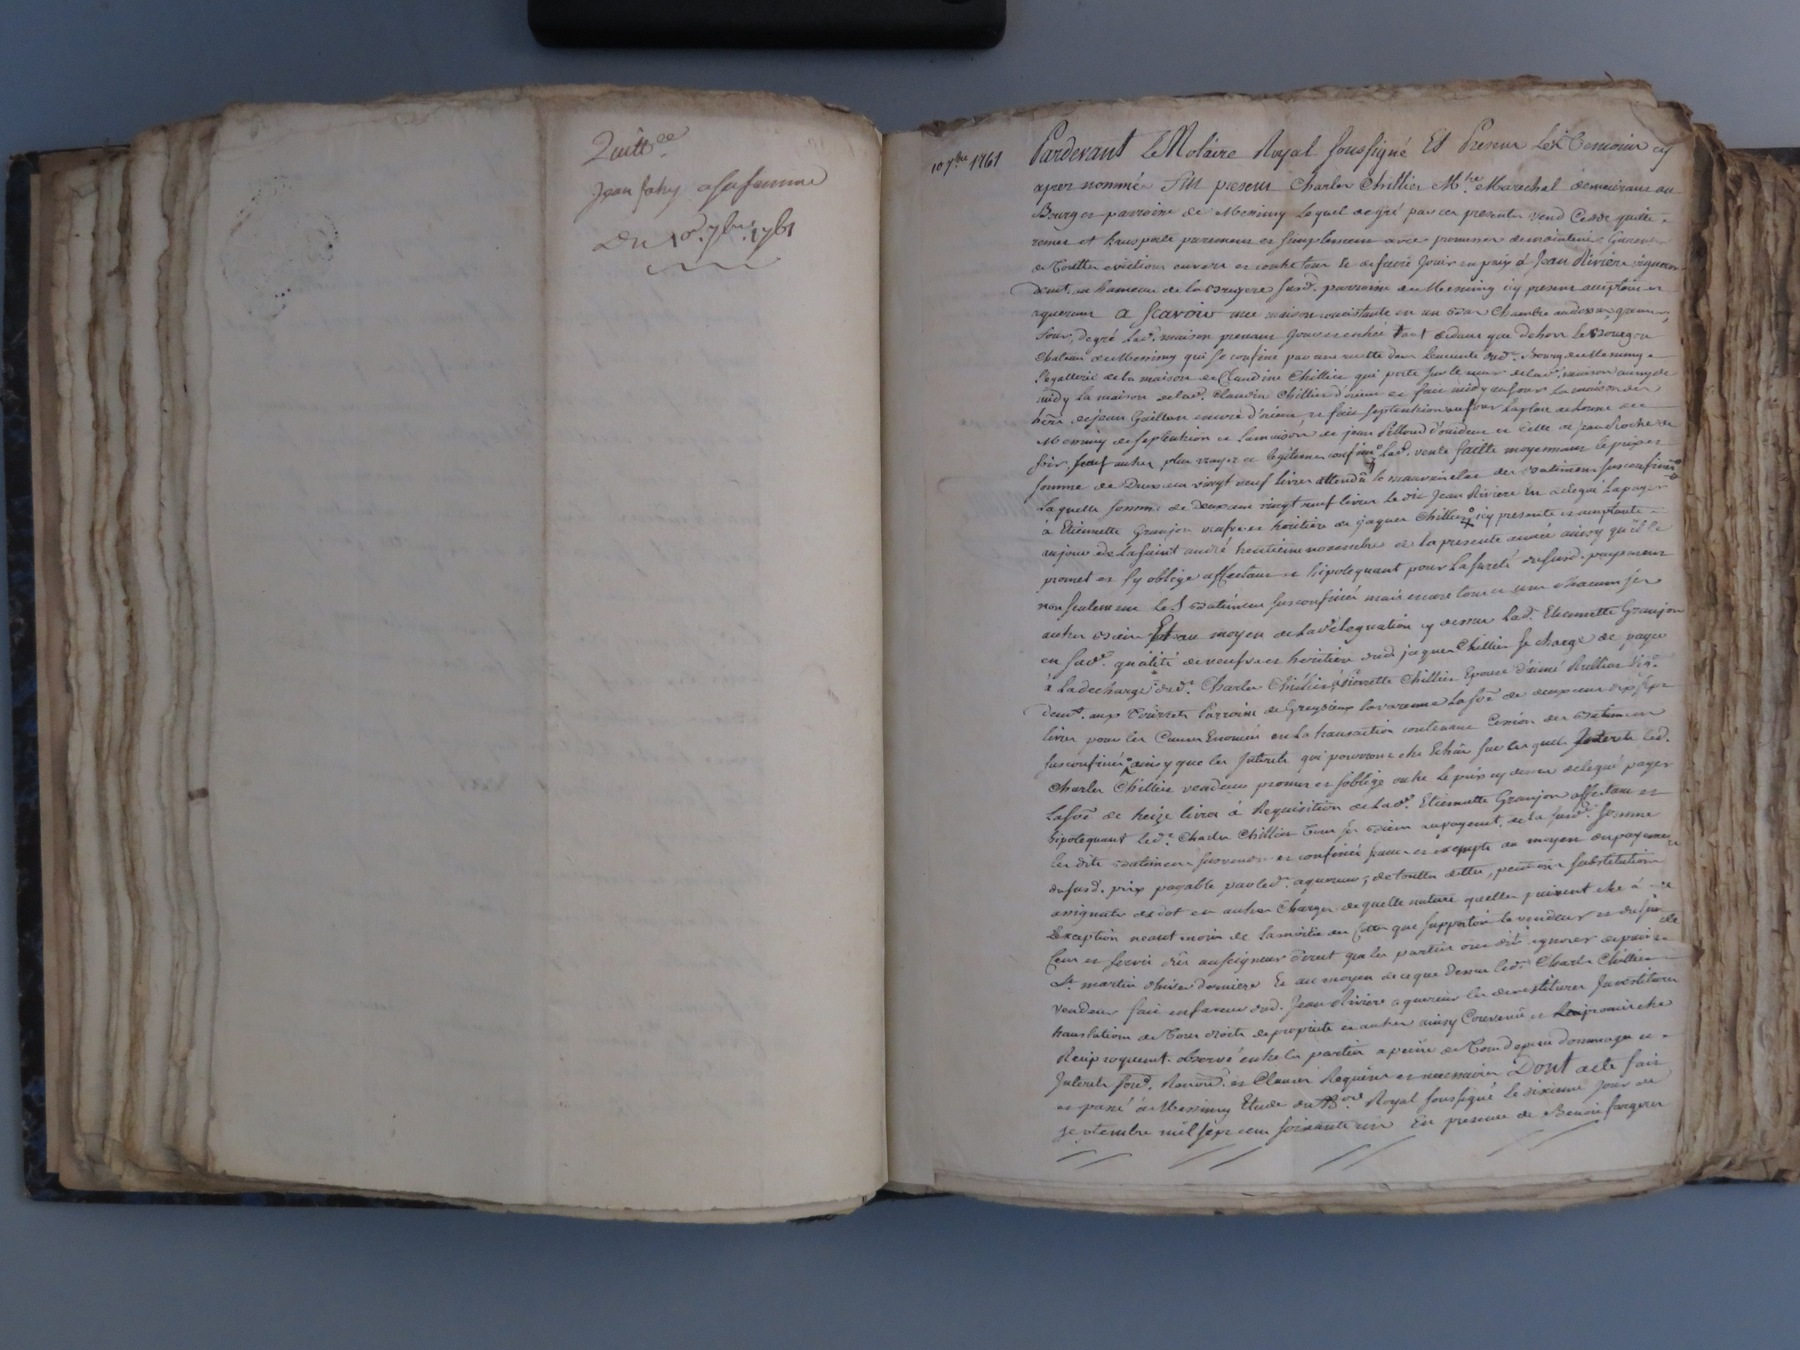 Quitt.ce
Jean fahy a sa femme
Du 10.e 7bre 1761
10 7bre 1761
Pardevant Le Notaire Royal soussigné Et Presens Les Temoins cy
apres nommés Fut present Charles Chillier M.tre Marechal demeurant au
Bourg et parroisse de Messimy Lequel de gré par ces presentes vend Cede quitte
remet et transporte purement et simplement avec promesse de maintenir Garentir
de Toutes evictions envers et contre tous Et de faire Jouir en paix à Jean Riviere vigneron
demt. au hameau de la Bruyere susd. parroisse de Messimy icy present acceptant et
aquereur a Scavoir une maison consistante en un Bas Chambre au dessus grenier,
four, degré lad. maison prenant Jour et entrée tant dedans que dehors le Bourg ou
Chateau de Messimy qui se confine par une ruette dans l'enceinte dud. Bourg de Messimy
l'egallerie de la maison de Claudine Chillier qui porte sur le mur de lad. maison
midy la maison de lad. Claudine Chillier d'orient et fait midy au four la maison des
hers. de jean Guillon encore d'orient et fait septentrion au four la place
Messimy de septentrion et la maison de jean Pelloud d'occident et celle de jean Roche de
soir sauf autres plus vrayes et legitimes confins Lad. vente faitte moyennant le prix et
somme de Deux cent vingt neuf livres attendû le mauvais etat des Batimens susconfinés
Laquelle somme de deux cent vingt neuf livres Le dit Jean Riviere En a delegué La payer
à Etiennette Granjon veufve et heritiere de Jaques Chillier icy presente et acceptante
au jour de La saint andré trentieme novembre de la presente année ainsy qu'il le
promet et s'y oblige affectant et hipotequant pour La sureté dususd. payement
non seulement Les Batimens susconfinés mais encore tous et uns chacuns ses
autres biens Et au moyen de La delegation cy dessus Lad. Etiennette Granjon
en sad. qualité de veufve et heritiere dud jaques Chillier se charge de payer
à La decharge dud. Charles Chillier, à Pierrette Chillier Epouse d'aimé
demt. aux Tourrets Parroisse de Greysieux Lavarenne La sôe de deux cent dix sept
livres pour les Causes Enoncées en La transaction contenant Cession des Batimens
susconfinés ainsy que les Interets qui pourront etre Echus sur lesquels Interets led.
Charles Chillier vendeur promet et s'oblige outre Le prix cy dessus delegué payer
La sôe de treize livres à Requisition de Lad. Etiennette Granjon affectant et
hipotequant led. Charles Chillier tous ses biens au payemt. de La susd. somme
Les dits Batimens sus vendus et confinés francs et exempts au moyen du payement
du susd. prix payable par led. aquereur, de toutes dettes, pensions substitutions
assignats de dot et autres Charges de quelle nature quelles puissent etre à
L'exception neantmoins de la moitié des Cottes que supportoit le vendeur et
Cens et servis dûs au seigneur direct que les parties ont dit ignorer depuis la
St. martin d'hiver derniere Et au moyen de ce que Dessus led. Charles Chillier
vendeur fait en faveur dud. Jean Riviere aquereur les devestitures Investitures
translations de Tous droits de proprieté et autres ainsy Convenû et Leu promis etre
Reciproquemt. observé entre les parties a peine de Tous depens dommages et
Interets sous. Renons. et Clauses Requises et necessaires Dont acte fait
et passé à Messimy Etude du Nore. Royal soussigné Le dixieme jour de
septembre mil sept cent soixante un En presence de Benoit